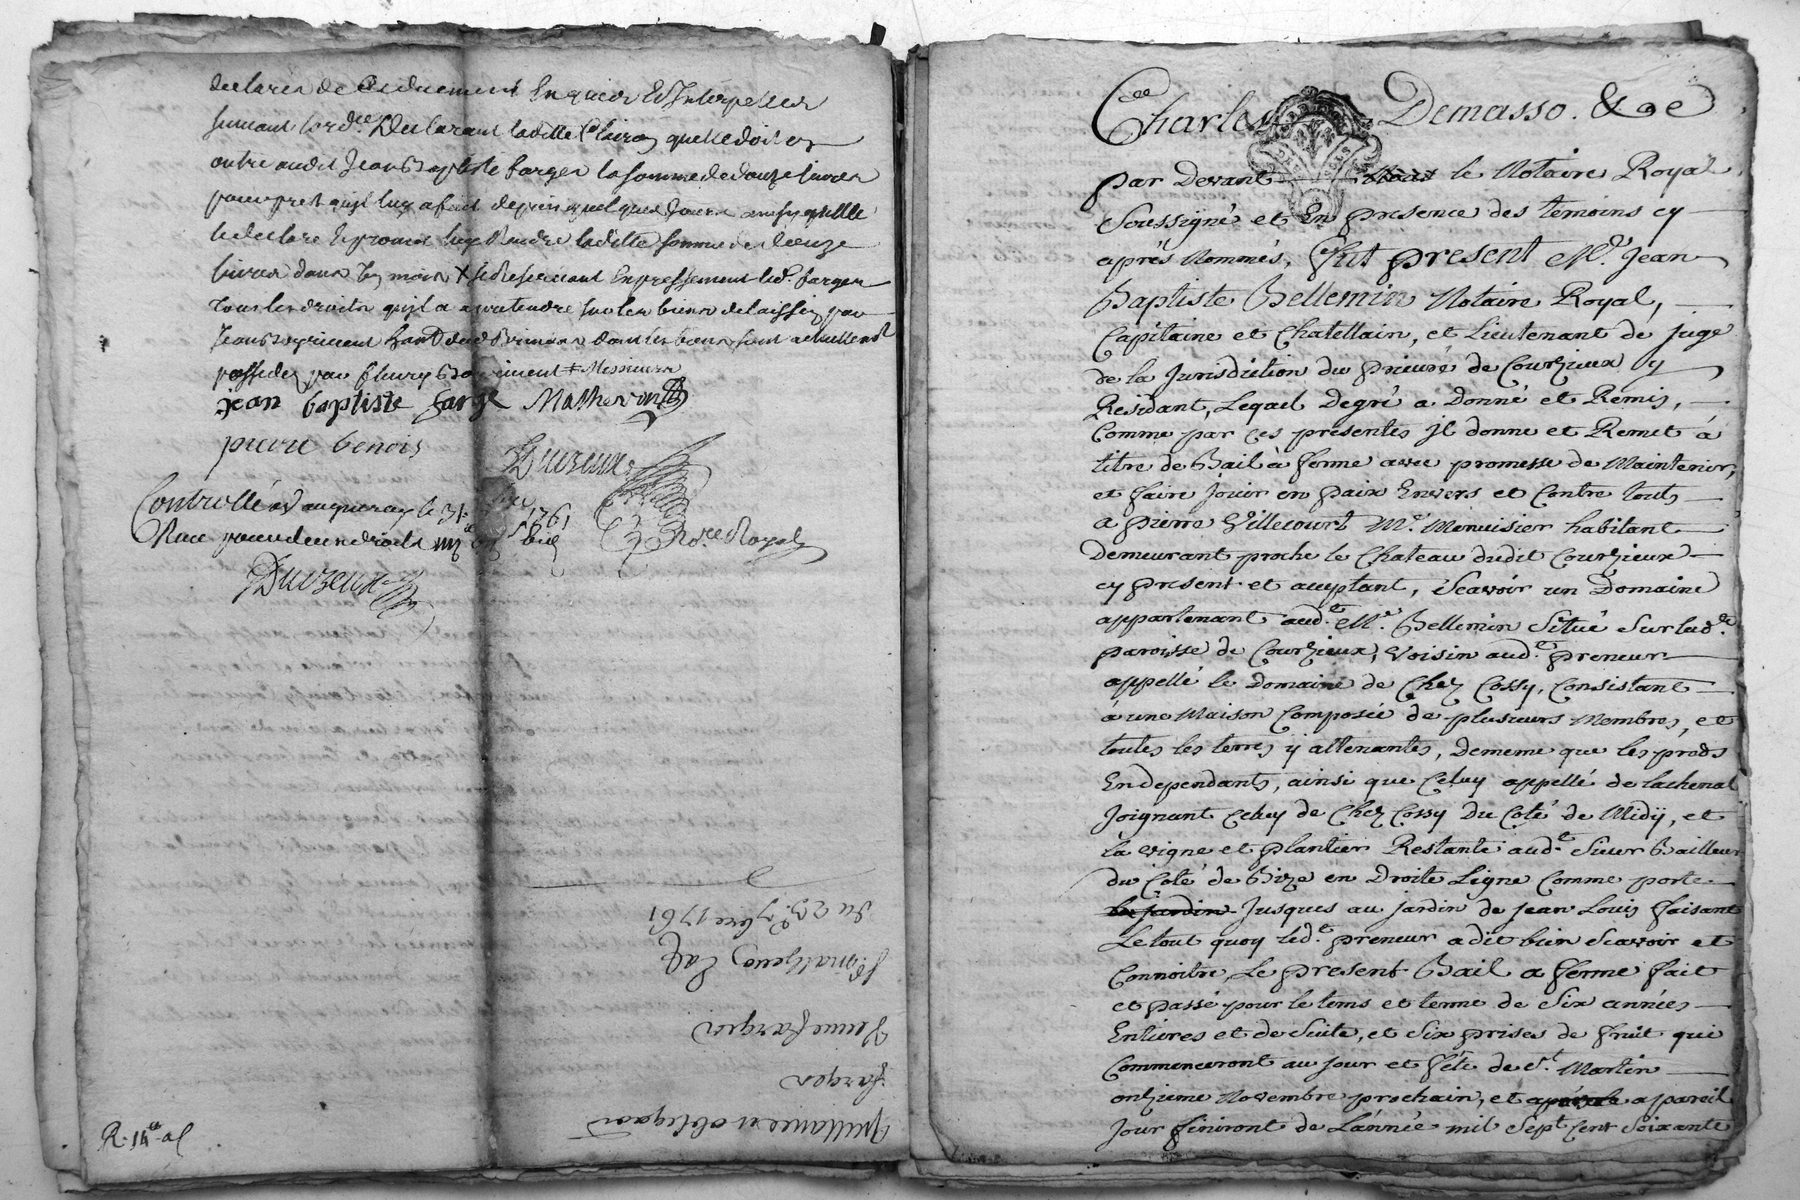 declarés de ce duement enquis et Interpellés
suivant l'ord.ce Declarant laditte qu'elle doit en
outre audit Jean Baptiste farges la somme de douze livres
pour pret qu'jl luy a fait depuis quelques Jours ainsy qu'elle
le declare Et promet luy Rendre laditte somme de douze
livres dans mois + se Reservant Expressement led. farges
tous les droits qu'jl a a pretendre sur les biens delaissés par
Jean dont les biens sont actuellem.t
possedés par fleury
jean baptiste farge Mathevon
pierre benois
Duizeux
Controllé a le 31 1761
Recu pour deux droits
No.re Royal
Duizeux
quittance et obligaon
farges
Du 23 7bre 1761
R. 14
Charles Demasso. &ce
par Devant Nous le Notaire Royal
Soussigné et En presence des temoins cy
aprés Nommés, Fut present M.r Jean
Baptiste Bellemin Notaire Royal,
Capitaine et Chatellain, et Lieutenant de juge
de la Jurisdiction du prieuré de Courzieux y
Residant, Lequel Degré a Donné et Remis,
Comme par ces presentes jl donne et Remet á
titre de Bail à ferme avec promesse de Maintenir,
et faire Jouir en paix Envers et Contre touts
a pierre Villecourt M.e Menuisier habitant
Demeurant proche le Chateau dudit Courzieux
cy present et acceptant, Scavoir un Domaine
appartenant aud.t M.e Bellemin Situé Sur lad.te
paroisse de Courzieux, Voisin aud.t preneur
appellé le Domaine de Chez Cossy, Consistant
á une Maison Composée de plusieurs Membres, et
toutes les terres y attenantes, Dememe que les preds
En dependants, ainsi que Celuy appellé de lachenal
Joignant Celuy de Chez Cossy Du Coté de Midy, et
la vigne et plantier Restante aud.t Sieur Bailleur
du Coté de Bize en Droite Ligne Comme porte
le jardin Jusques au jardin de jean Louis faisant
Le tout quoy led.t preneur a dit bien Scavoir et
Connoitre, Le present Bail a ferme fait
et passé pour le tems et terme de Six années
Entieres et de Suite, et Six prises de fruit qui
Commenceront au jour et féte de S.t Martin
onzieme Novembre prochain, et a pareil
Jour finiront de L'année mil Sept Cent Soixante